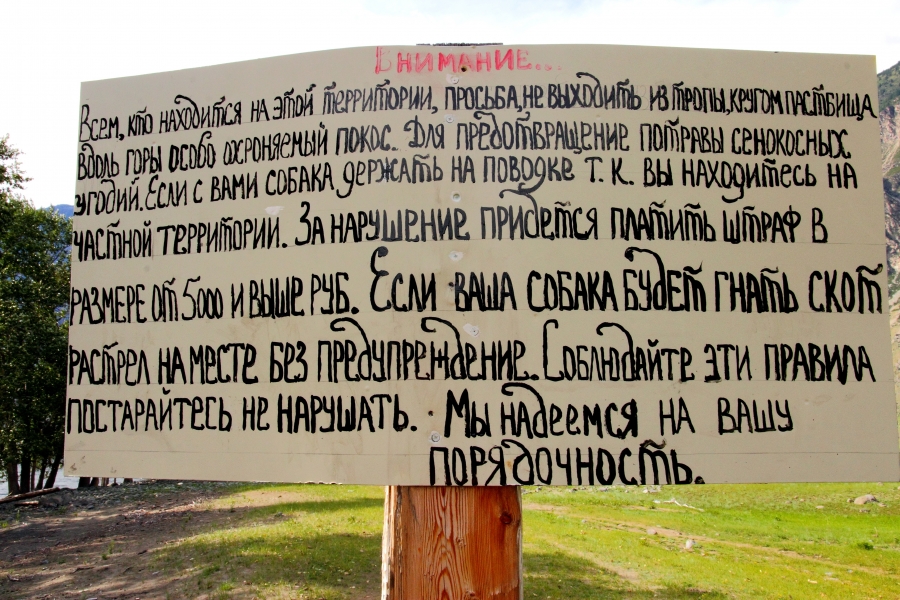 Внимание...
Всем, кто находится на этой территории, просьба, не выходить из тропы, кругом пастбища
вдоль горы особо охроняемый покос. Для предотвращение потравы сенокосных
угодий. Если с вами собака держать на поводке т. к. вы находитесь на
частной территории. За нарушение придется платить штраф в
размере от 5000 и выше руб. Если ваша собака будет гнать скот
растрел на месте без предупреждение. Соблюдайте эти правила
постарайтесь не нарушать. Мы надеемся на вашу
порядочность.